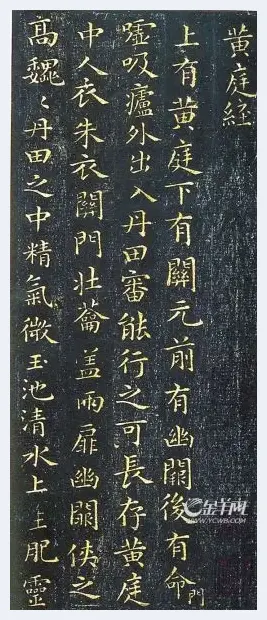 黄庭経
上有黄庭下有關元前有幽闕後有命門
嘘吸廬外出入丹田審能行之可長存黄庭
中人衣朱衣關門壯蘥盖兩扉幽闕俠之
高魏〻丹田之中精氣微玉池清水上生肥靈
金羊网
WWW.YCWB.COM